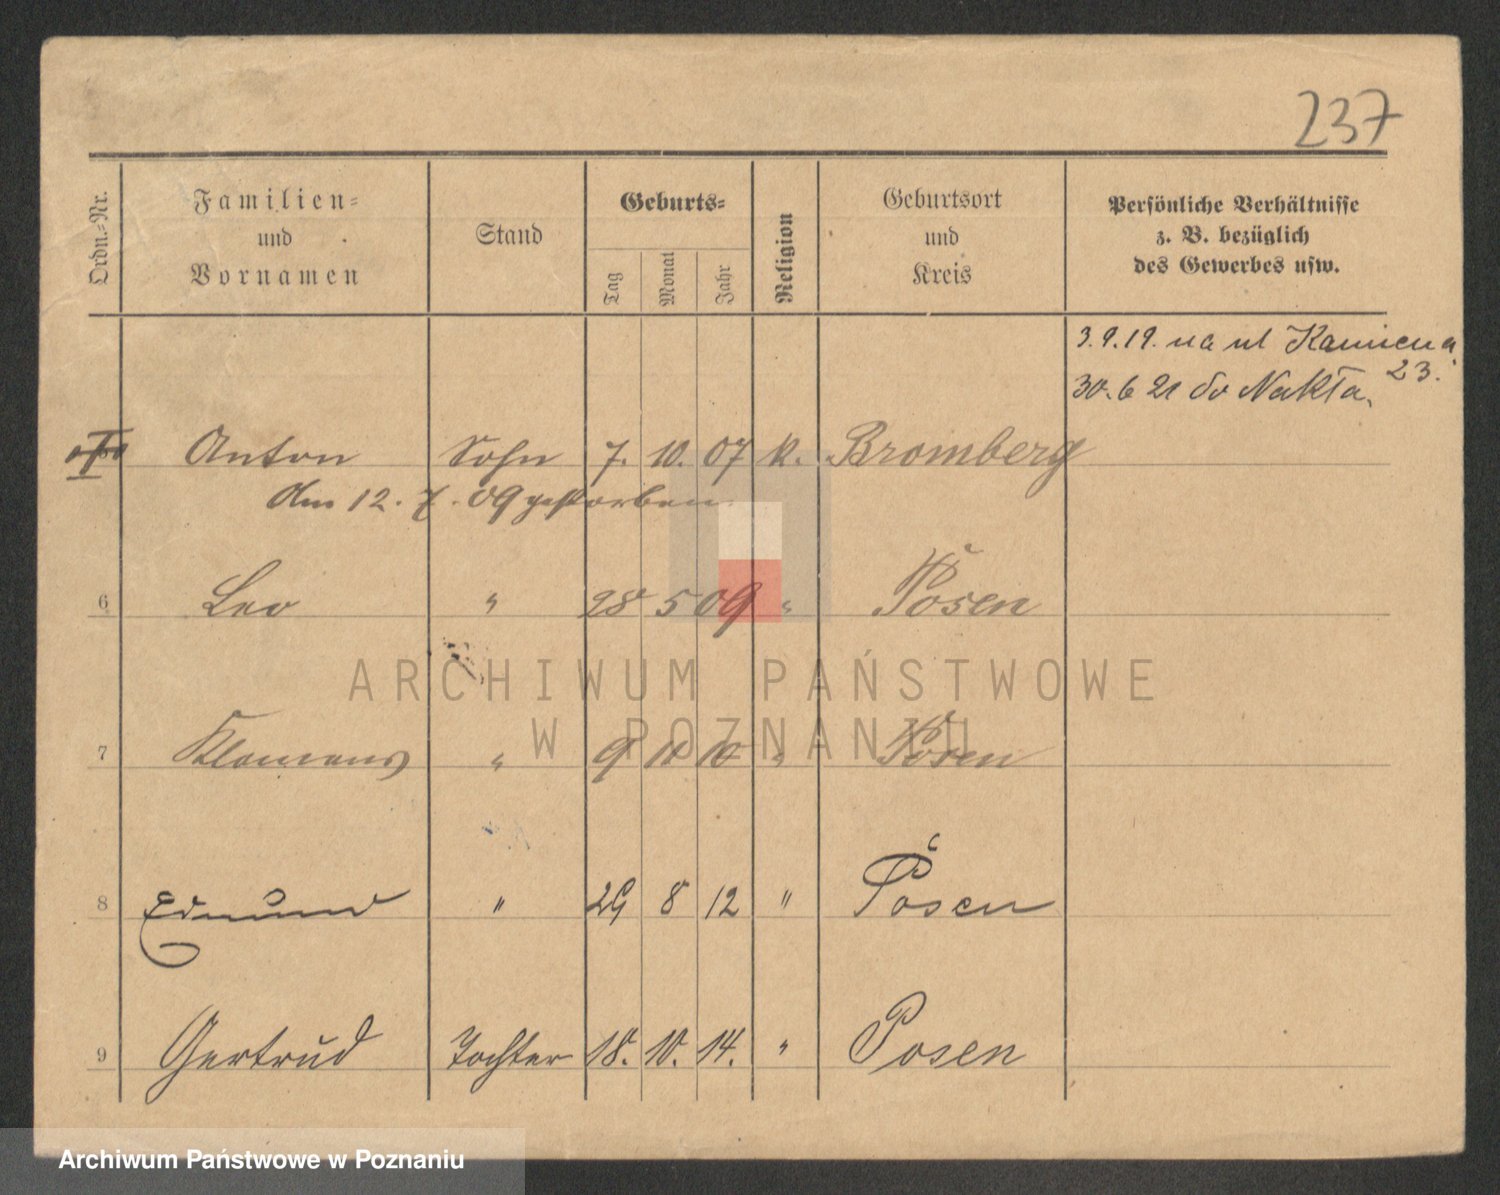 237
Ordn.-Nr.
Familien-
und
Vornamen
Stand
Geburts-
Tag
Monat
Jahr
Religion
Geburtsort
und
Kreis
Persönliche Verhältnisse
z. B. bezüglich
des Gewerbes usw.
3.9.19. na ul Kamienna
23.
30.6 21 do Nakła.
Anton Sohn 7. 10. 07 k. Bromberg
Am 12. 7. 09 gestorben
6 Leo " 28 5 09 " Posen
7 Klemens " 9 11 10 " Posen
8 Edmund " 29 8 12 " Posen
9 Gertrud Tochter 18. 10. 14. " Posen
ARCHIWUM PAŃSTWOWE
W POZNANIU
Archiwum Państwowe w Poznaniu